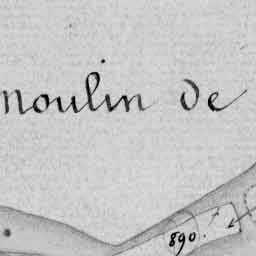 moulin de
890.